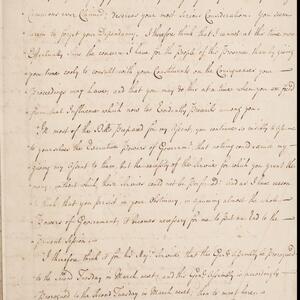 Commons ever Claimed; deserves your most serious Consideration. You seem
to forget your Dependency, I therefore think that I cannot at this time more
Effectually shew the concern I have for the People of this Province, than by giving
you time coolly to consult with your Constituents on the Consequences your
Proceedings may have, and that you may do this at a time when you are free
from that Influence which now too Evidently Prevails among you.
In most of the Bills Prepared for my Assent, you continue
to yourselves the Executive Powers of Government that nothing could
giving my Assent to them but the necessity of the Service for which you grant the
money, without which those Services could not be Perform'd: and as I have reason
to think that you persist in your Obstinacy, in assuming almost the whole
Powers of Government, it becomes necessary for me to put an End to the
present Session.
I therefore think it for his Maj.ty's Service that this Gen.l Assembly be Prorogued
to the second Tuesday in March next, and this Gen.l Assembly is accordingly
Prorogued to the second Tuesday in March next, then to meet here.